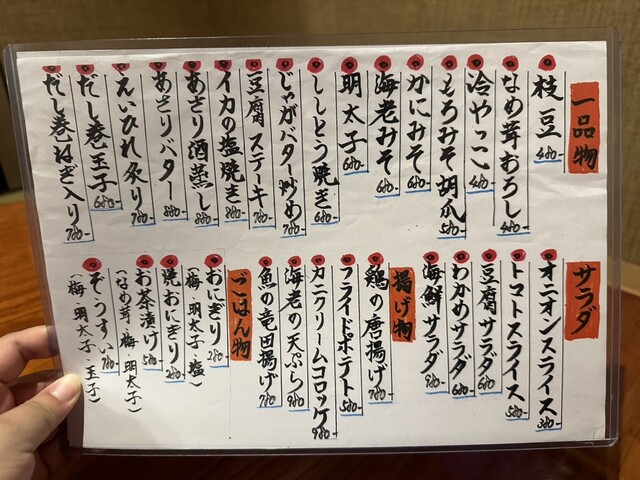 一品物
枝豆 480-
なめ茸おろし 480-
冷やっこ 480-
もろみそ胡瓜 580-
かにみそ 680-
海老みそ 680-
明太子 680-
ししとう焼き 680-
じゃがバター炒め 780-
豆腐ステーキ 780-
イカの塩焼き 880-
あさり酒蒸し 880-
あさりバター 880-
えいひれ炙り 780-
だし巻玉子 680-
だし巻ねぎ入り 780-
サラダ
オニオンスライス 380-
トマトスライス 580-
豆腐サラダ 680-
わかめサラダ 680-
海鮮サラダ 980-
揚げ物
鶏の唐揚げ 780-
フライドポテト 580-
カニクリームコロッケ 980-
海老の天ぷら 980-
魚の竜田揚げ 780-
ごはん物
おにぎり 280-
(梅・明太子・塩)
焼おにぎり 280-
お茶漬け 580-
(なめ茸・梅・明太子)
ぞうすい 780-
(梅・明太子・玉子)